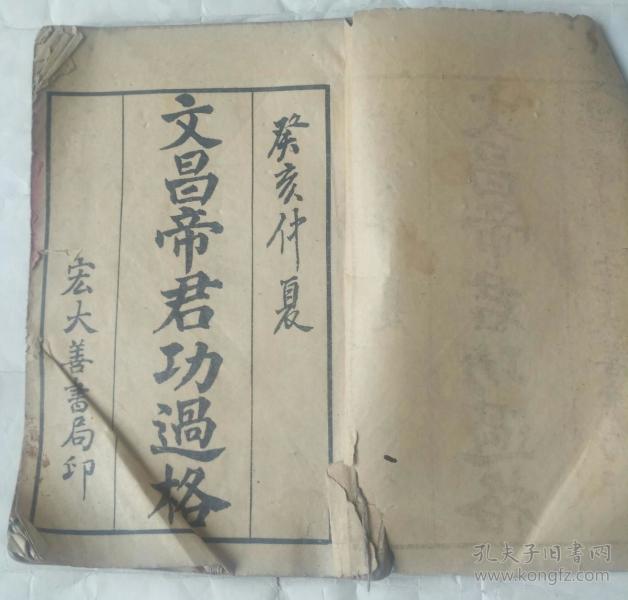 癸亥仲夏
文昌帝君功過格
宏大善書局印
孔夫子旧书网
www.kongfz.com